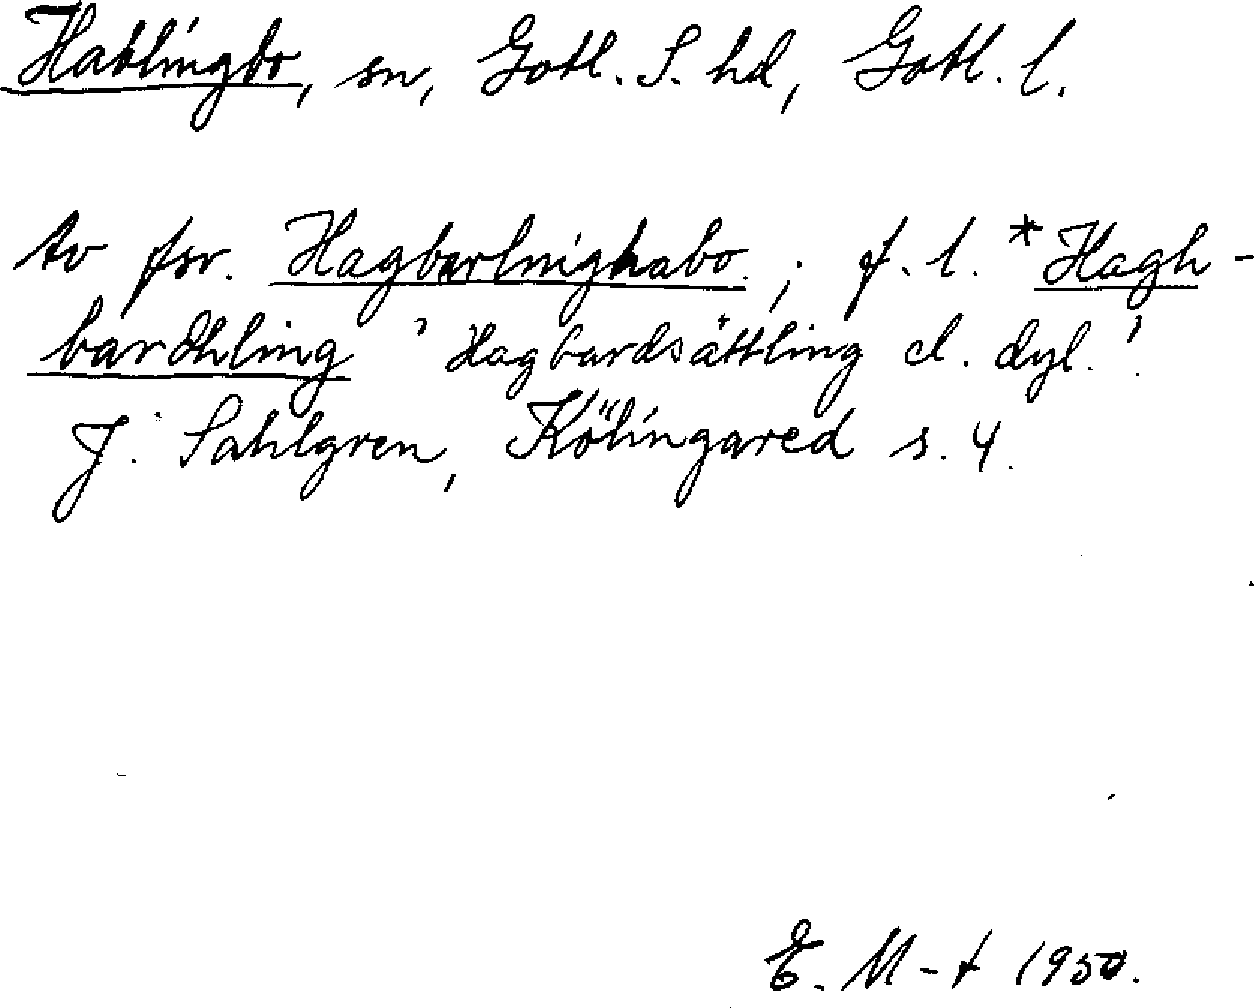 Hablingbo, sn, Gotl. S. hd, Gotl. l.
Av fsv. Hagbarlnighabo.; f. l. *Hagh-
bardhling 'Hagbardsättling el. dyl.'.
J. Sahlgren, Kölingared s. 4.
E. M-t 1950.